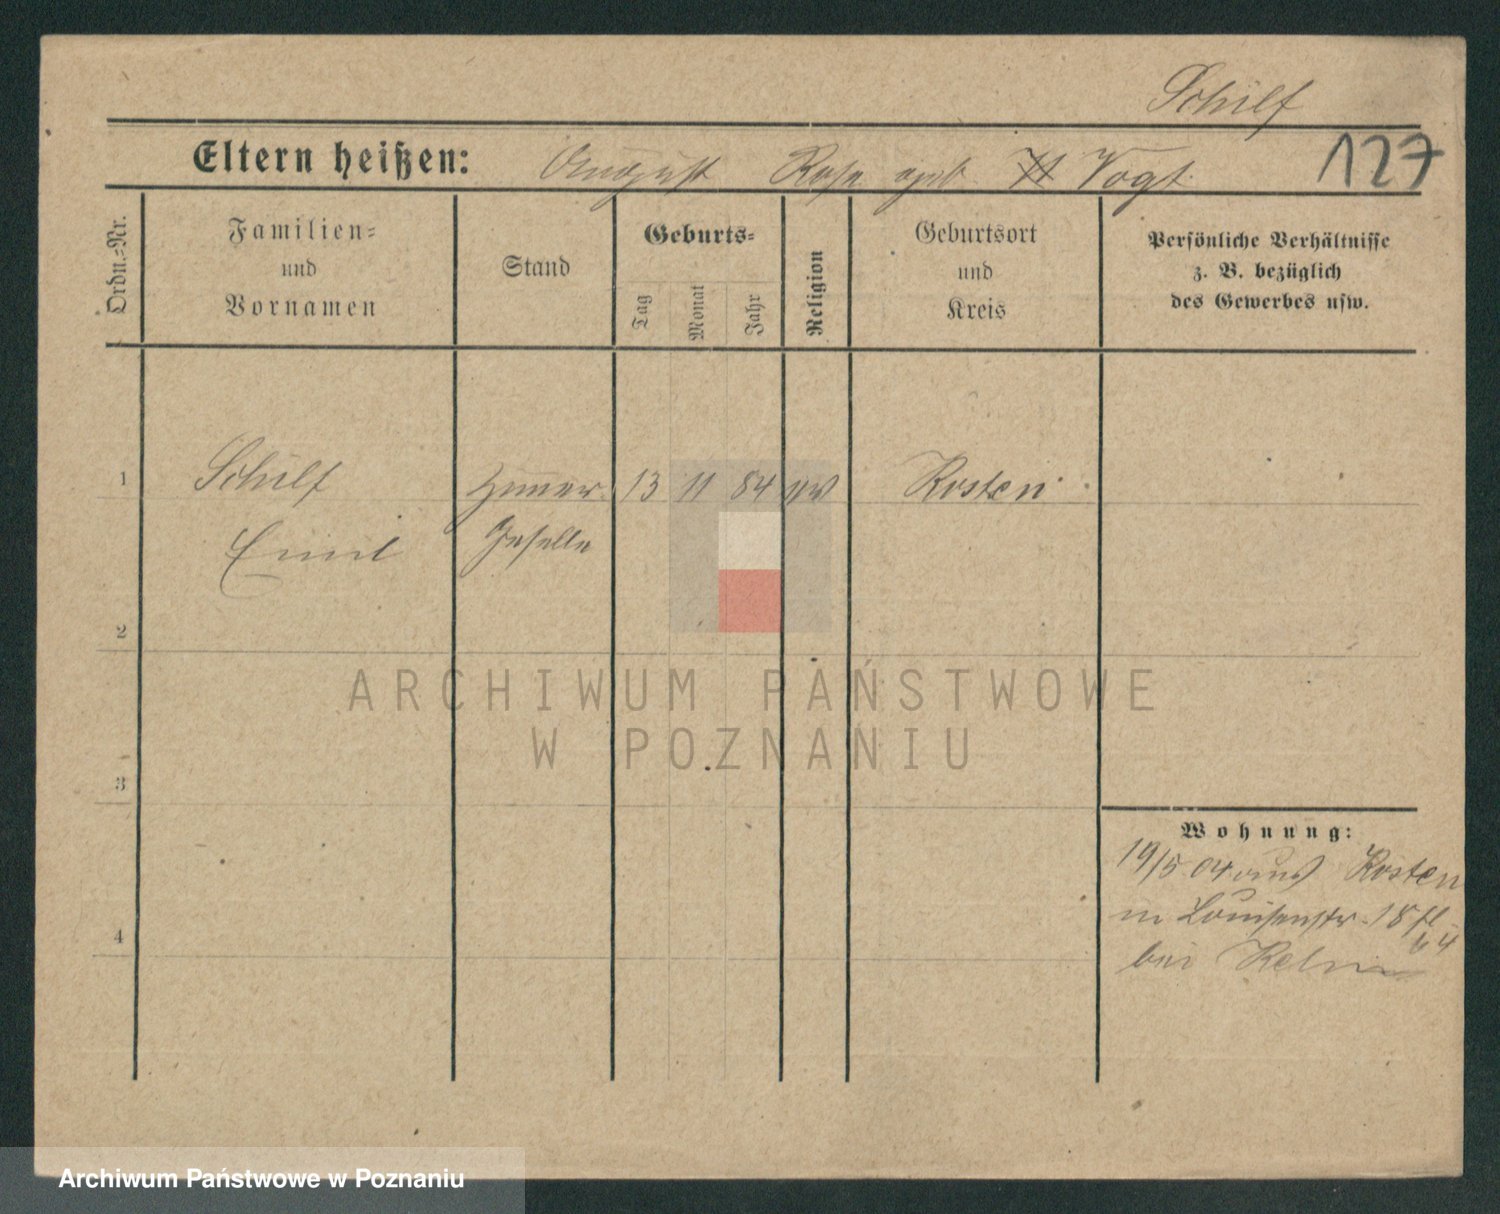 Schilf
Eltern heißen: August Rosa geb. Vogt
127
Ordn.-Nr.
Familien-
und
Vornamen
Stand
Geburts-
Tag
Monat
Jahr
Religion
Geburtsort
und
Kreis
Persönliche Verhältnisse
z. B. bezüglich
des Gewerbes usw.
1
Schilf
Emil
Zimmer
Geselle
13 11 84 ev
Kosten
2
3
4
Wohnung:
19/5 04 aus Kosten
in Louisenstr. 18
bei
ARCHIWUM PAŃSTWOWE
W POZNANIU
Archiwum Państwowe w Poznaniu